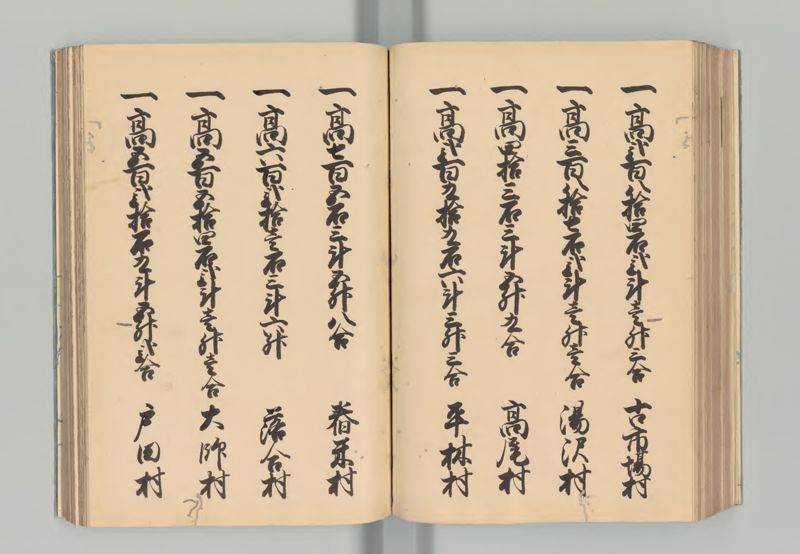 一高弐百八拾四石弐斗壱升三合 古市場村
一高三百八拾七石弐斗壱升壱合 湯沢村
一高四拾三石三斗五升九合 高尾村
一高弐百九拾九石六斗三升三合 平林村
一高七百五石三斗五升八合 舂米村
一高六百弐拾壱石三斗六升 落合村
一高五百五拾四石弐斗壱升壱合 大師村
一高五百弐拾石九斗五升弐合 戸田村